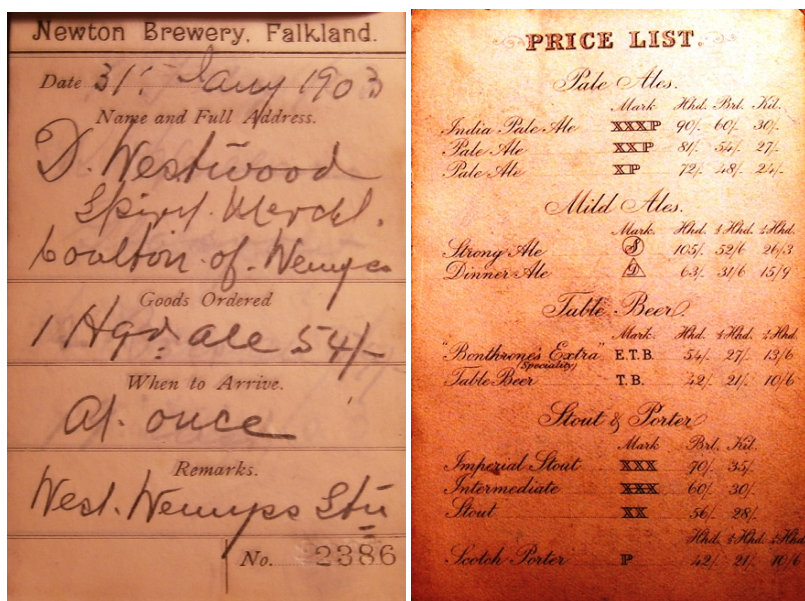 Newton Brewery, Falkland.
Date 31st Jany 1903
Name and Full Address.
D. Westwood
Spirit Mercht.
Coulton of Wemyss
Goods Ordered
1 Hgd. ale 54/-
When to Arrive.
At once
Remarks.
West Wemyss Stn
No. 2386
PRICE LIST.
Pale Ales.
Mark Hhd. Brl. Kil.
India Pale Ale XXXP 90/- 60/- 30/-
Pale Ale XXP 81/- 54/- 27/-
Pale Ale XP 72/- 48/- 24/-
Mild Ales.
Mark. Hhd. ½Hhd. ¼Hhd.
Strong Ale S 105/- 52/6 26/3
Dinner Ale D 63/- 31/6 15/9
Table Beer.
Mark. Hhd. ½Hhd. ¼Hhd.
"Bonthrone's Extra" E.T.B. 54/- 27/- 13/6
(Speciality)
Table Beer T.B. 42/- 21/- 10/6
Stout & Porter
Mark Brl. Kil.
Imperial Stout XXX 70/- 35/-
Intermediate XXX 60/- 30/-
Stout XX 56/- 28/-
Hhd. ½Hhd. ¼Hhd
Scotch Porter P 42/- 21/- 10/6